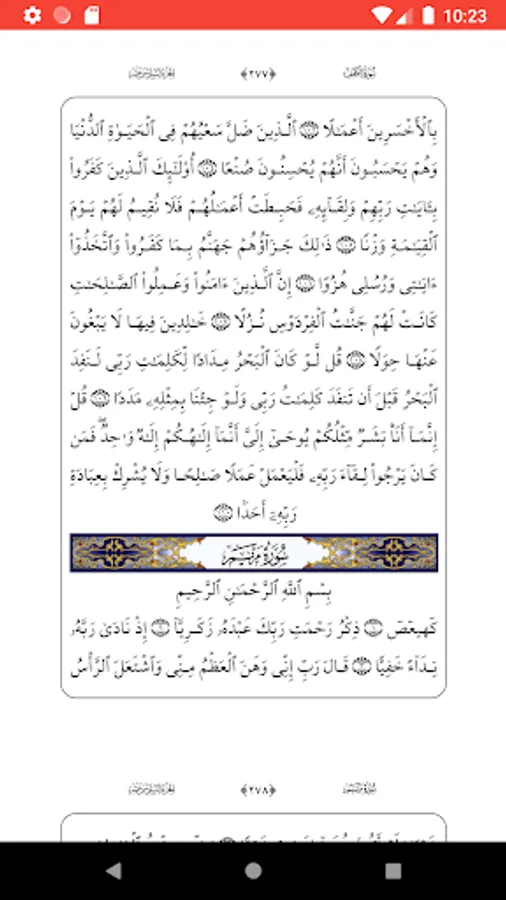 10:23
سُورَةُ الكَهْفِ ﴿٢٧٧﴾
بِٱلۡأَخۡسَرِينَ أَعۡمَٰلًا ۝ ٱلَّذِينَ ضَلَّ سَعۡيُهُمۡ فِي ٱلۡحَيَوٰةِ ٱلدُّنۡيَا
وَهُمۡ يَحۡسَبُونَ أَنَّهُمۡ يُحۡسِنُونَ صُنۡعًا ۝ أُوْلَٰٓئِكَ ٱلَّذِينَ كَفَرُواْ
بِـَٔايَٰتِ رَبِّهِمۡ وَلِقَآئِهِۦ فَحَبِطَتۡ أَعۡمَٰلُهُمۡ فَلَا نُقِيمُ لَهُمۡ يَوۡمَ
ٱلۡقِيَٰمَةِ وَزۡنًا ۝ ذَٰلِكَ جَزَآؤُهُمۡ جَهَنَّمُ بِمَا كَفَرُواْ وَٱتَّخَذُوٓاْ
ءَايَٰتِي وَرُسُلِي هُزُوًا ۝ إِنَّ ٱلَّذِينَ ءَامَنُواْ وَعَمِلُواْ ٱلصَّٰلِحَٰتِ
كَانَتۡ لَهُمۡ جَنَّٰتُ ٱلۡفِرۡدَوۡسِ نُزُلًا ۝ خَٰلِدِينَ فِيهَا لَا يَبۡغُونَ
عَنۡهَا حِوَلًا ۝ قُل لَّوۡ كَانَ ٱلۡبَحۡرُ مِدَادًا لِّكَلِمَٰتِ رَبِّي لَنَفِدَ
ٱلۡبَحۡرُ قَبۡلَ أَن تَنفَدَ كَلِمَٰتُ رَبِّي وَلَوۡ جِئۡنَا بِمِثۡلِهِۦ مَدَدًا ۝ قُلۡ
إِنَّمَآ أَنَا۠ بَشَرٌ مِّثۡلُكُمۡ يُوحَىٰٓ إِلَيَّ أَنَّمَآ إِلَٰهُكُمۡ إِلَٰهٌ وَٰحِدٌۖ فَمَن
كَانَ يَرۡجُواْ لِقَآءَ رَبِّهِۦ فَلۡيَعۡمَلۡ عَمَلًا صَٰلِحًا وَلَا يُشۡرِكۡ بِعِبَادَةِ
رَبِّهِۦٓ أَحَدَۢا ۝
سُورَةُ مَرْيَمَ
بِسۡمِ ٱللَّهِ ٱلرَّحۡمَٰنِ ٱلرَّحِيمِ
كٓهيعٓصٓ ۝ ذِكۡرُ رَحۡمَتِ رَبِّكَ عَبۡدَهُۥ زَكَرِيَّآ ۝ إِذۡ نَادَىٰ رَبَّهُۥ
نِدَآءً خَفِيًّا ۝ قَالَ رَبِّ إِنِّي وَهَنَ ٱلۡعَظۡمُ مِنِّي وَٱشۡتَعَلَ ٱلرَّأۡسُ
سُورَةُ مَرْيَمَ ﴿٢٧٨﴾